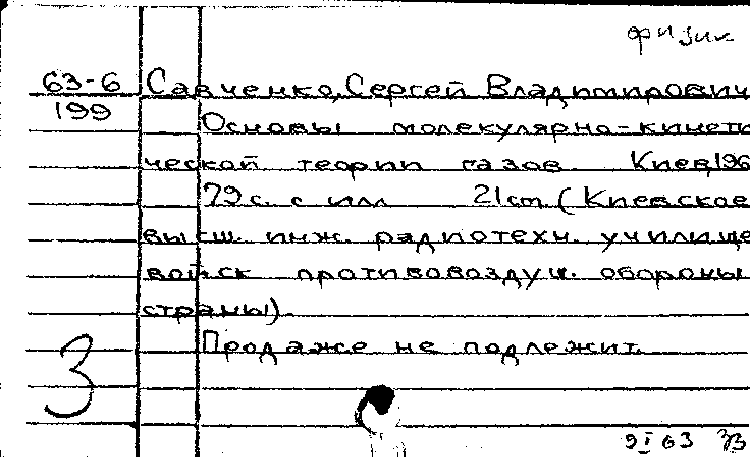 физик
63-6 Савченко, Сергей Владимирович
199 Основы молекулярно-кинети
ческой теории газов Киев, 196
79 с. с илл 21 cm (Киевское
высш. инж. радиотехн. училище
войск противовоздуш. обороны
страны).
Продаже не подлежит.
3
9 I 63